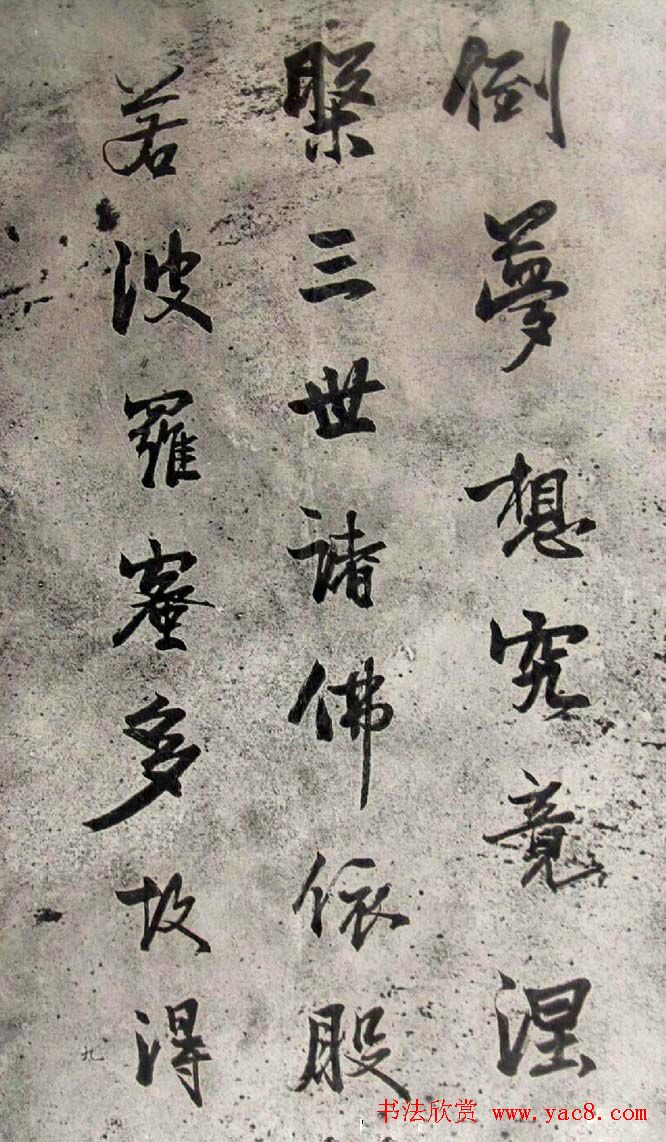 倒夢想究竟涅
槃三世諸佛依般
若波羅蜜多故得
九
书法欣赏 www.yac8.com